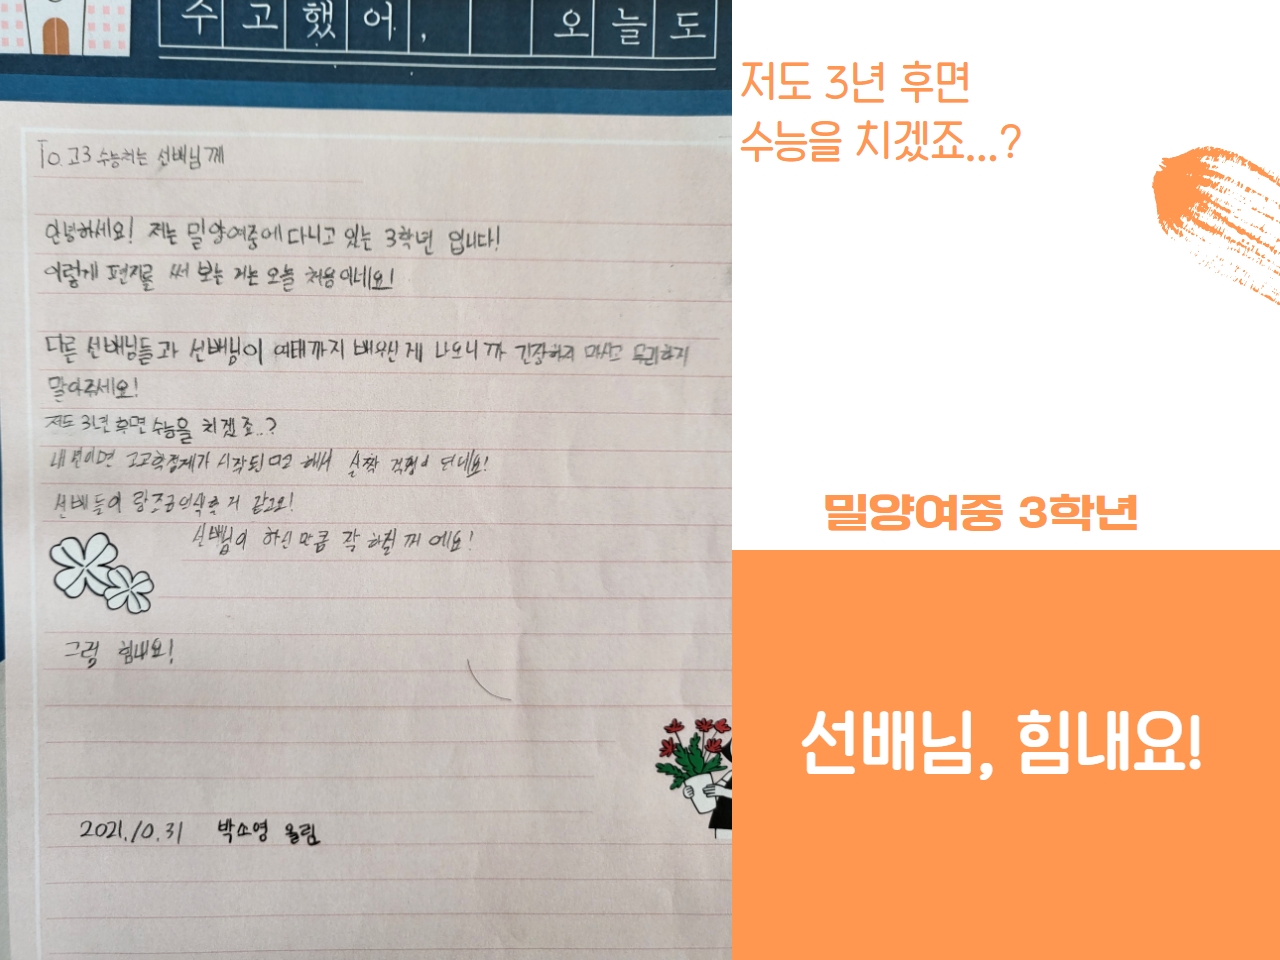 수고했어, 오늘도
To. 고3 수능치는 선배님께
안녕하세요! 저는 밀양여중에 다니고 있는 3학년 입니다!
이렇게 편지를 써 보는 거는 오늘 처음이네요!
다른 선배님들과 선배님이 여태까지 배우신게 나오니까 긴장하지 마시고 무리하지
말아주세요!
저도 3년 후면 수능을 치겠죠..?
내년이면 고교학점제가 시작된다고 해서 살짝 걱정이 되네요!
선배들이 같고요!
선배님이 하신 만큼 각 하실 꺼 에요!
그럼 힘내요!
2021.10.31 박소영 올림
저도 3년 후면
수능을 치겠죠...?
밀양여중 3학년
선배님, 힘내요!